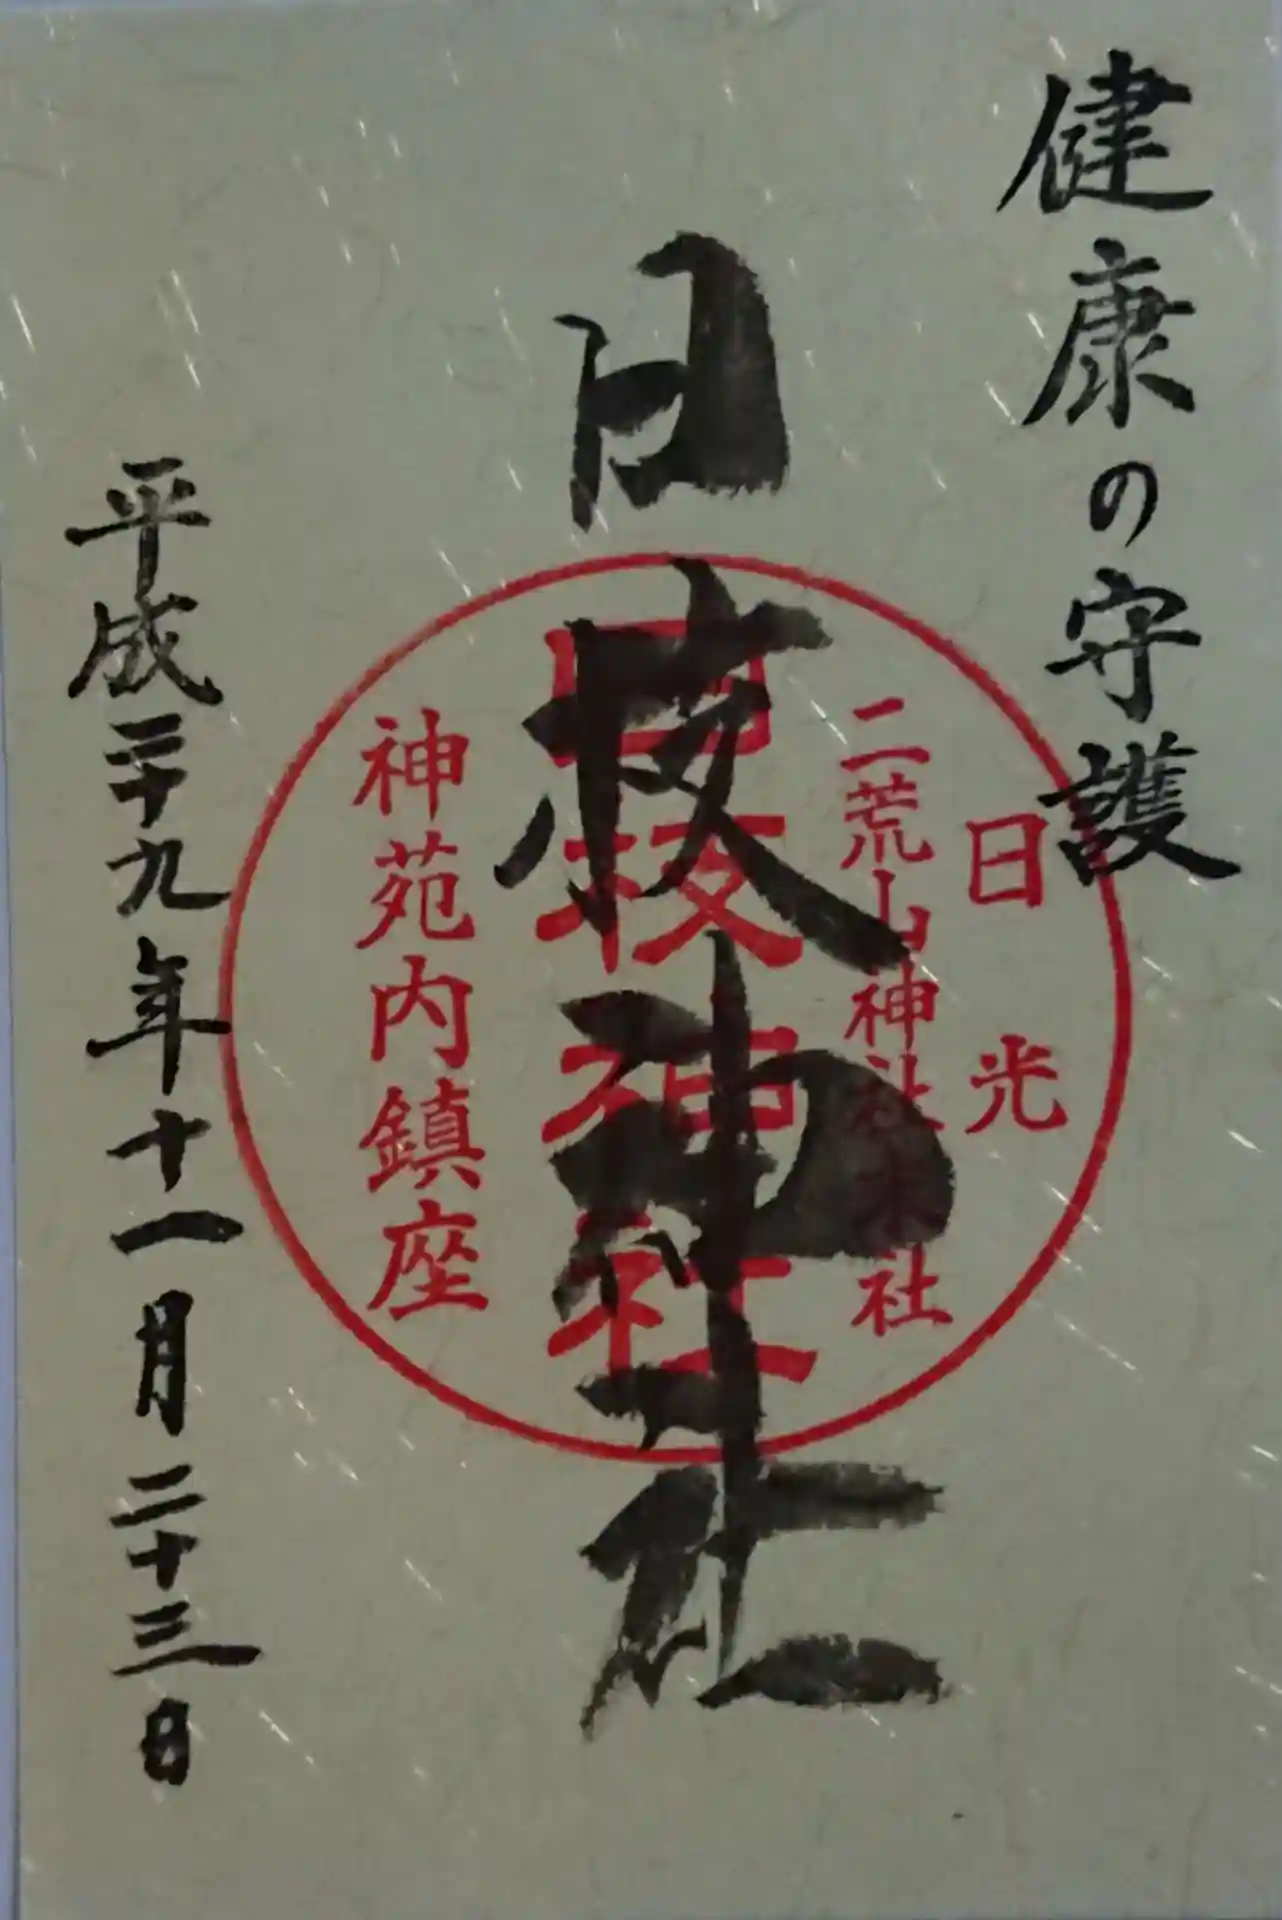 健康の守護
日光
二荒山神社末社
日枝神社
日枝神社
神苑内鎮座
平成二十九年十一月二十三日